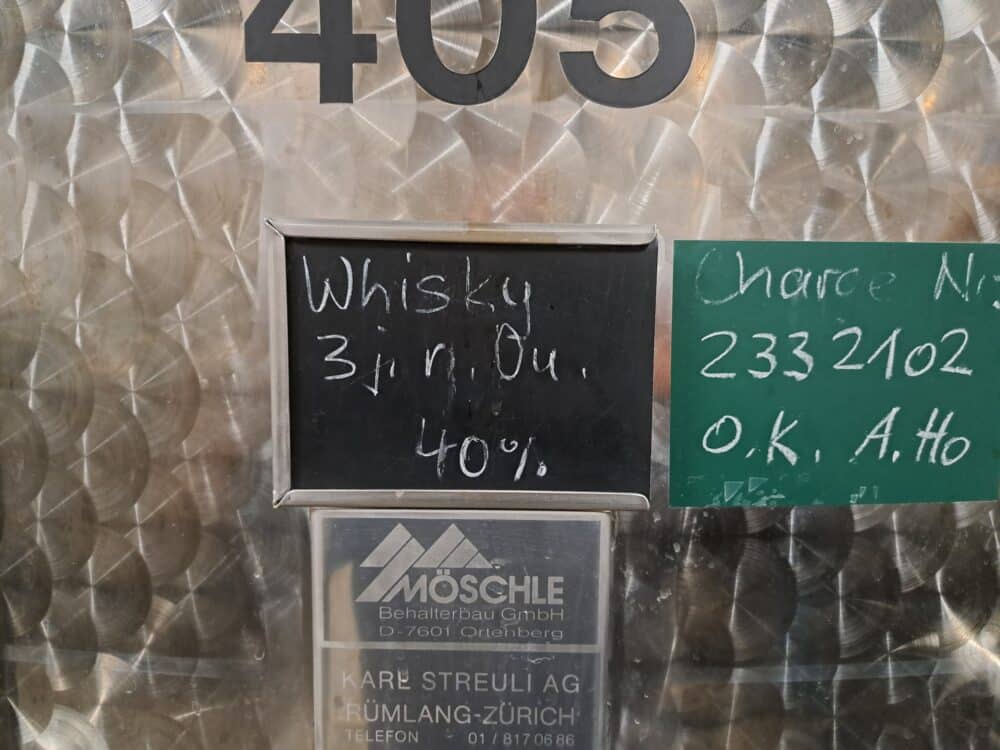 405
Whisky
3 j. n. Du.
40%
Charge Nr.
2332102
O.K. A.Ho
MÖSCHLE
Behälterbau GmbH
D-7601 Ortenberg
KARL STREULI AG
RÜMLANG-ZÜRICH
TELEFON 01/8170686